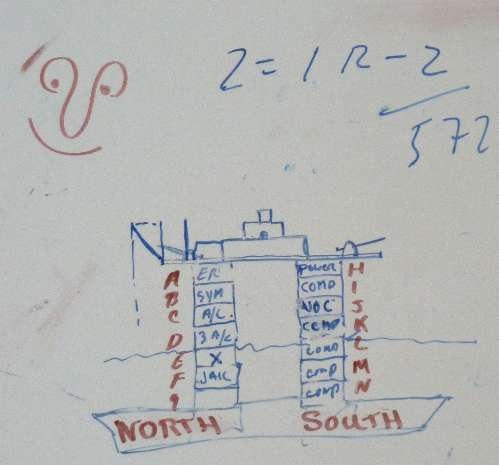 Z = 1 R - 2
572
A ER POWER H
B SYM COMP I
C A/C NOC J
COMP K
D 3 A/C COMP L
E X COMP M
F JAIC COMP N
NORTH SOUTH